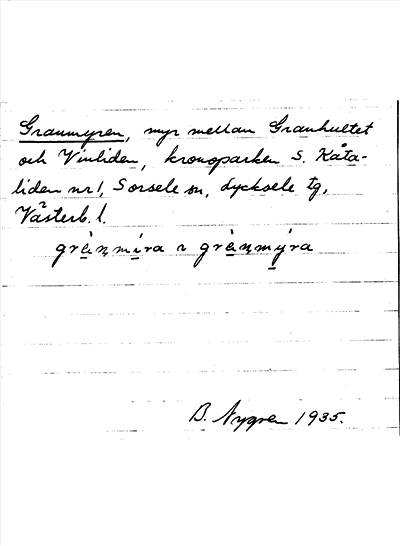 Granmyren, myr mellan Granhultet
och Vinliden, kronoparken S. Kåta-
liden nr 1, Sorsele sn, Lycksele tg,
Västerb. l.
B. Nygren 1935.